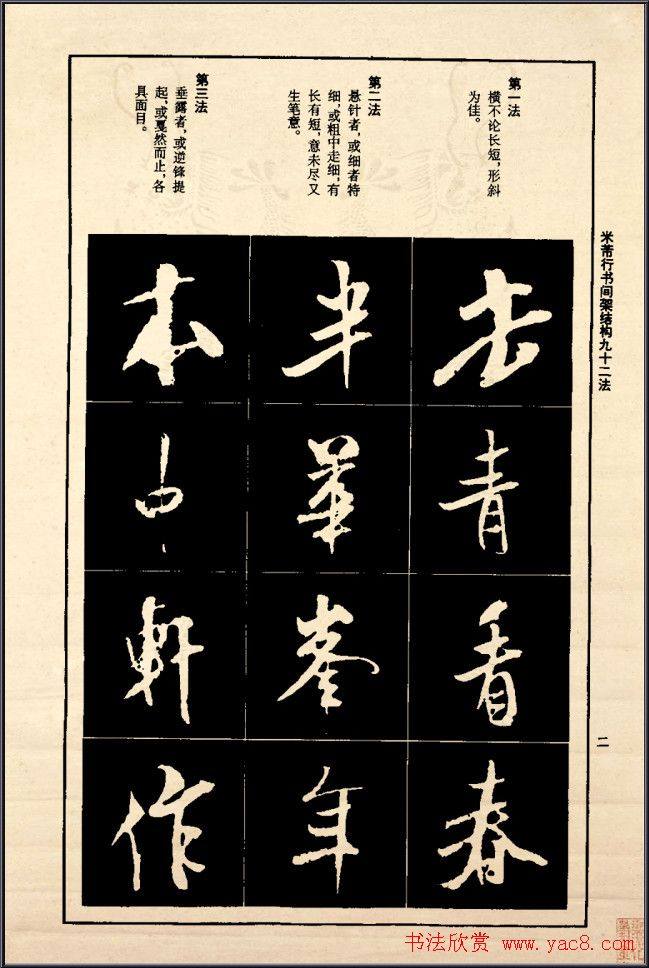 米芾行书间架结构九十二法
二
第一法
横不论长短，形斜
为佳。
第二法
悬针者，或细者特
细，或粗中走细，有
长有短，意未尽又
生笔意。
第三法
垂露者，或逆锋提
起，或戛然而止，各
具面目。
去青看春
半華峯年
本中軒作
书法欣赏 www.yac8.com